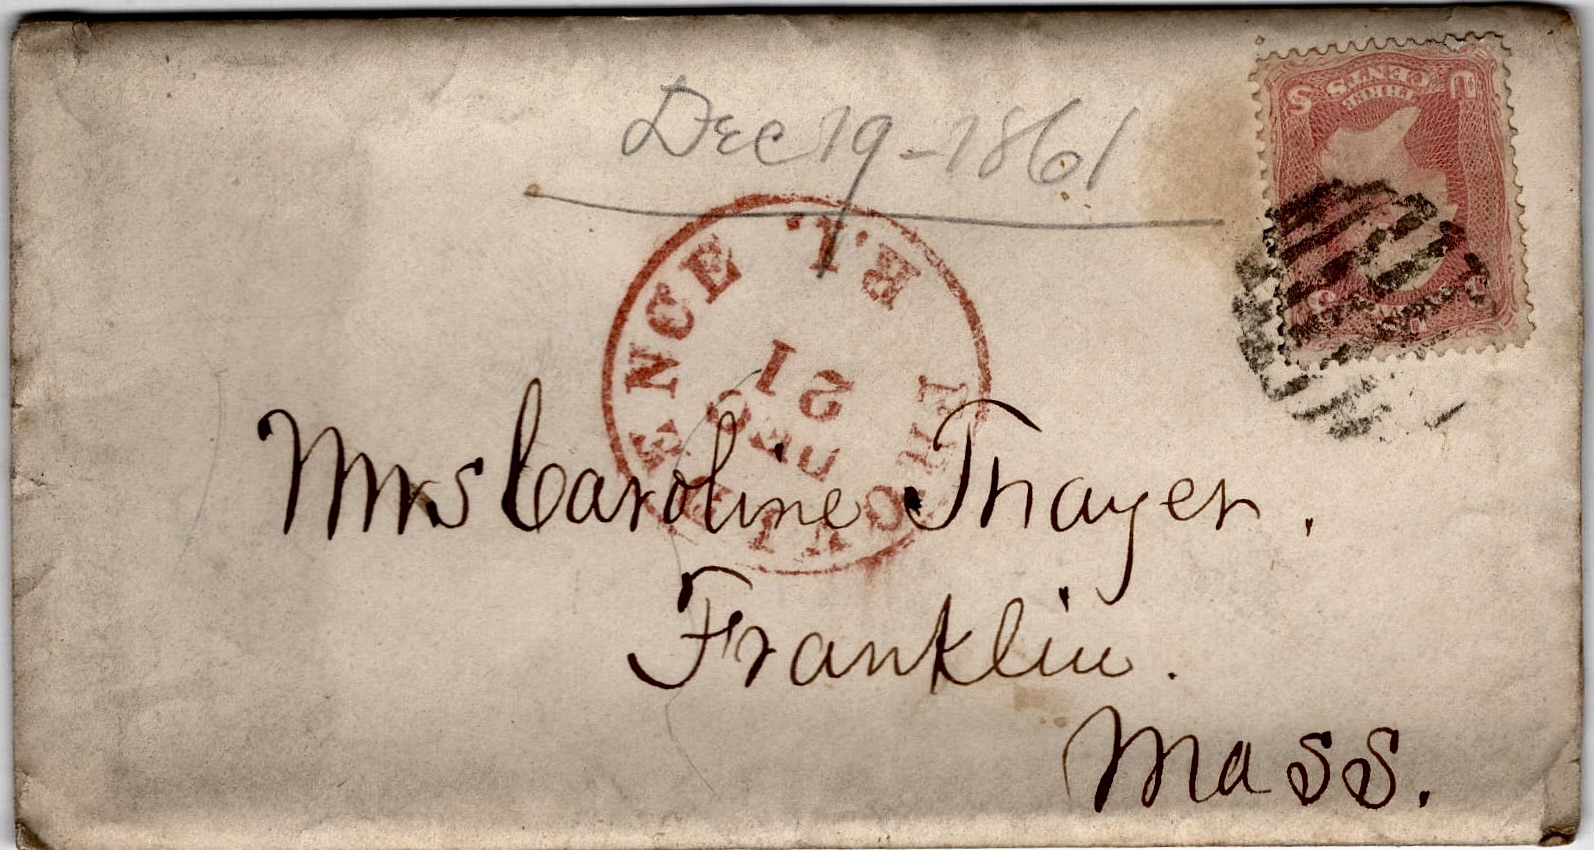 Dec 19-1861
PROVIDENCE R.I.
DEC
21
Mrs Caroline Thayer.
Franklin.
Mass.
U S
THREE
CENTS
U.S.
3